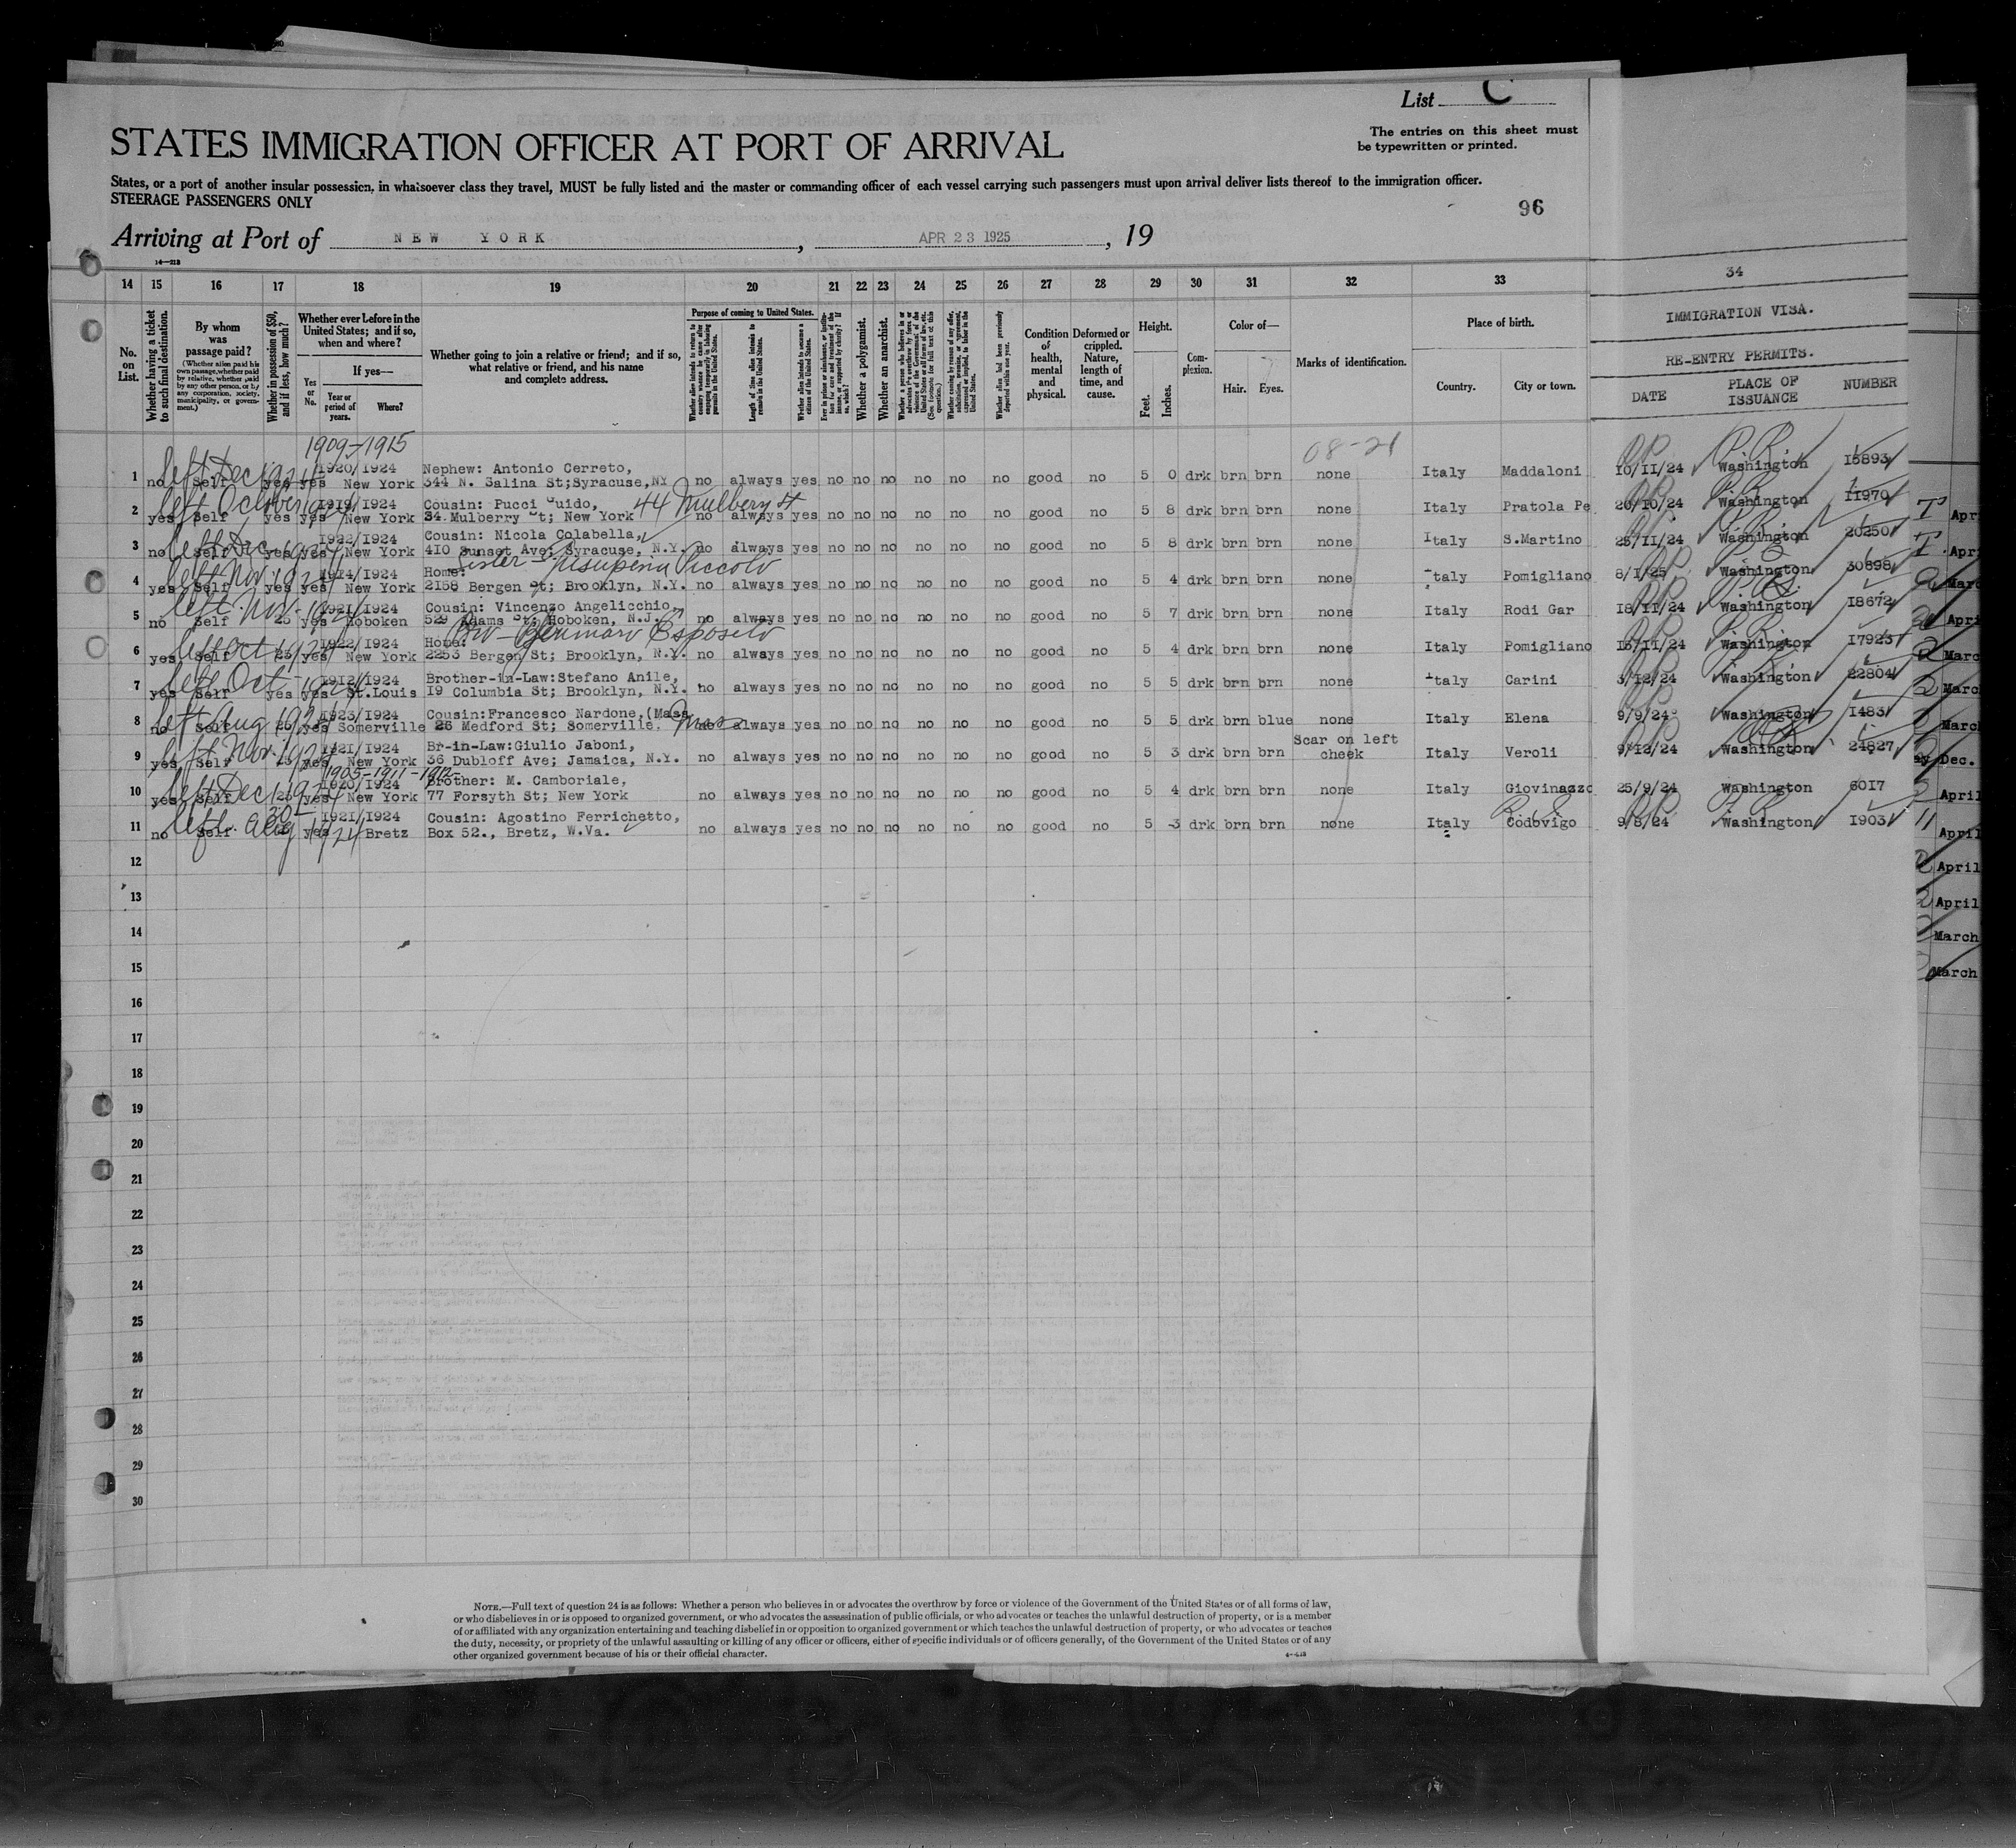 List C
STATES IMMIGRATION OFFICER AT PORT OF ARRIVAL
The entries on this sheet must
be typewritten or printed.
States, or a port of another insular possession, in whatsoever class they travel, MUST be fully listed and the master or commanding officer of each vessel carrying such passengers must upon arrival deliver lists thereof to the immigration officer.
STEERAGE PASSENGERS ONLY
96
Arriving at Port of NEW YORK, APR 23 1925, 19
14—213
14 15 16 17 18 19 20 21 22 23 24 25 26 27 28 29 30 31 32 33 34
No. on List.
Whether having a ticket to such final destination.
By whom was passage paid?
(Whether alien paid his own passage, whether paid by relative, whether paid by any other person, or by any corporation, society, municipality, or government.)
Whether in possession of $50, and if less, how much?
Whether ever before in the United States; and if so, when and where?
Yes or No.
If yes—
Year or period of years.
Where?
Whether going to join a relative or friend; and if so, what relative or friend, and his name and complete address.
Purpose of coming to United States.
Length of time alien intends to remain in the United States.
Whether alien intends to become a citizen of the United States.
Whether a polygamist.
Whether an anarchist.
Condition of health, mental and physical.
Deformed or crippled. Nature, length of time, and cause.
Height.
Feet. Inches.
Complexion.
Color of—
Hair. Eyes.
Marks of identification.
Place of birth.
Country. City or town.
IMMIGRATION VISA.
RE-ENTRY PERMITS.
DATE PLACE OF ISSUANCE NUMBER
1909-1915
08-21
left Dec 1924 1920/1924 Nephew: Antonio Cerreto,
1 no Self yes yes New York 344 N. Salina St;Syracuse,NY no always yes no no no no no no good no 5 0 drk brn brn none Italy Maddaloni 10/11/24 Washington
left October 1924 1919/1924 Cousin: Pucci uido, 44 Mulbery St
2 yes Self yes yes New York 34 Mulberry t; New York no always yes no no no no no no good no 5 8 drk brn brn none Italy Pratola Pe 20/10/24 Washington 11970
left Dec 1924 1922/1924 Cousin: Nicola Colabella,
3 no Self yes yes New York 410 Sunset Ave; Syracuse, N.Y. no always yes no no no no no no good no 5 8 drk brn brn none Italy S.Martino 25/11/24 Washington 20250
left Nov. 1924 1914/1924 Home: Sister - Piccolo
4 yes Self yes yes New York 2158 Bergen t; Brooklyn, N.Y. no always yes no no no no no no good no 5 4 drk brn brn none taly Pomigliano 8/1/25 Washington 30898
left Nov. 1924 1921/1924 Cousin: Vincenzo Angelicchio,
5 no Self 25 yes Hoboken 529 Adams t; Hoboken, N.J. no always yes no no no no no no good no 5 7 drk brn brn none Italy Rodi Gar 18/11/24 Washington 18672
left Oct 1924 1922/1924 Home: Bro - Gennaro Esposito
6 yes Self 25 yes New York 2253 Bergen St; Brooklyn, N.Y. no always yes no no no no no no good no 5 4 drk brn brn none Italy Pomigliano Washington 17923
left Oct - 1924 1912/1924 Brother-in-Law:Stefano Anile,
7 yes Self yes yes St.Louis 19 Columbia St; Brooklyn, N.Y. no always yes no no no no no no good no 5 5 drk brn brn none taly Carini 3/12/24 Washington 22804
left Aug 1924 1923/1924 Cousin:Francesco Nardone,(Mass
8 no Self 25 yes Somerville 26 Medford St; Somerville. Mass no always yes no no no no no no good no 5 5 drk brn blue none Italy Elena 9/9/24 Washington 1483
left Nov. 1924 1921/1924 Br-in-Law:Giulio Jaboni, Scar on left
9 yes Self yes New York 36 Dubloff Ave; Jamaica, N.Y. no always yes no no no no no no good no 5 3 drk brn brn cheek Italy Veroli 9/12/24 Washington 24827
1905-1911-1912-
left Dec 1924 1920/1924 Brother: M. Camboriale,
10 yes Self 25 yes New York 77 Forsyth St; New York no always yes no no no no no no good no 5 4 drk brn brn none Italy Giovinazzo 25/9/24 Washington 6017
left Aug 1924 1921/1924 Cousin: Agostino Ferrichetto,
11 no Self yes Bretz Box 52., Bretz, W.Va. no always yes no no no no no no good no 5 3 drk brn brn none Italy Codovigo 9/8/24 Washington 1903
12
13
14
15
16
17
18
19
20
21
22
23
24
25
26
27
28
29
30
Apr
Apri
Marc
Apri
Marc
Marc
March
Dec.
April
April
April
April
March
March
NOTE.—Full text of question 24 is as follows: Whether a person who believes in or advocates the overthrow by force or violence of the Government of the United States or of all forms of law,
or who disbelieves in or is opposed to organized government, or who advocates the assassination of public officials, or who advocates or teaches the unlawful destruction of property, or is a member
of or affiliated with any organization entertaining and teaching disbelief in or opposition to organized government or which teaches the unlawful destruction of property, or who advocates or teaches
the duty, necessity, or propriety of the unlawful assaulting or killing of any officer or officers, either of specific individuals or of officers generally, of the Government of the United States or of any
other organized government because of his or their official character.